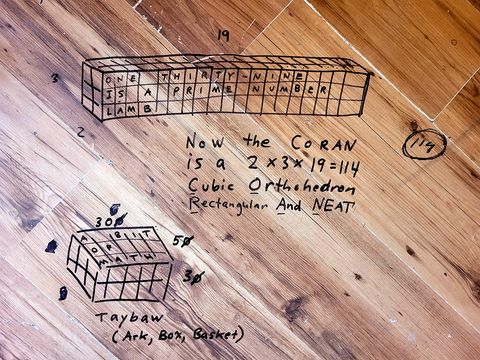 19
3
ONE THIRTY-NINE
IS A PRIME NUMBER
LAMB
2
Now the CoRAN
is a 2×3×19=114
114
Cubic Orthohedron
Rectangular And NEAT
300
50
CUBIT
OF
MATH
30
Taybaw
(Ark, Box, Basket)